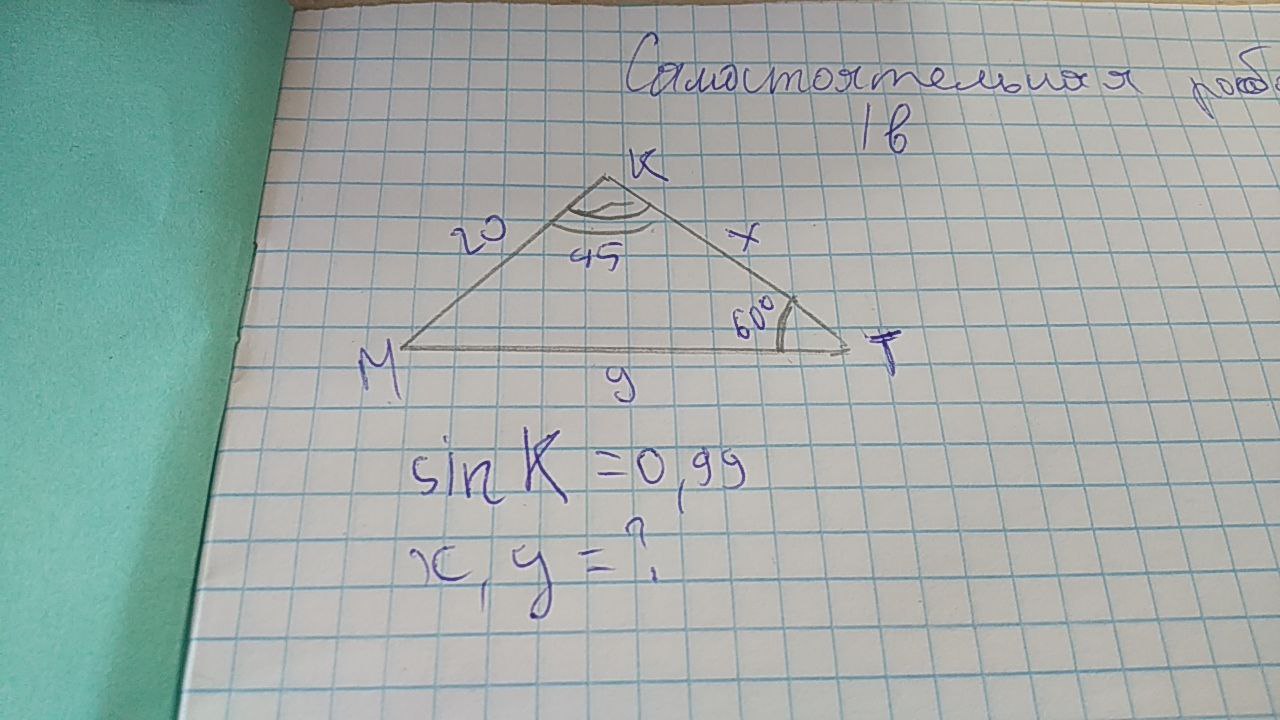 Самостоятельная
1в
K
20
x
45
60°
M
T
y
sin K = 0,99
x, y = ?